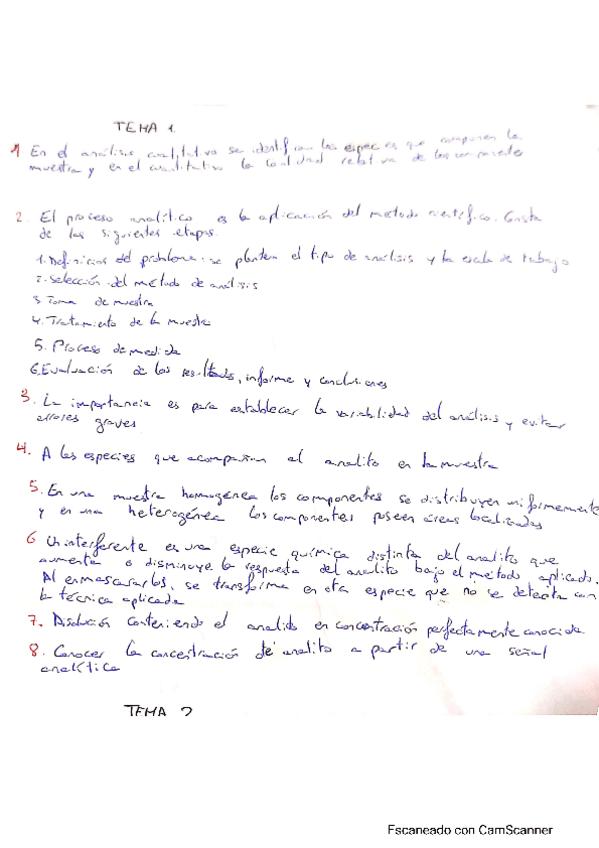 TEMA 1.
1 En el análisis cualitativo se identifican las especies que componen la
muestra y en el cuantitativo la cantidad relativa de los componentes
2. El proceso analítico es la aplicación del método científico. Consta
de las siguientes etapas.
1. Definición del problema: se plantea el tipo de análisis y la escala de trabajo
2. Selección del método de análisis
3 Toma de muestra
4. Tratamiento de la muestra
5. Proceso de medida
6. Evaluación de los resultados, informe y conclusiones
3. La importancia es para establecer la variabilidad del análisis y evitar
errores graves
4. A las especies que acompañan al analito en la muestra
5. En una muestra homogénea los componentes se distribuyen uniformemente
y en una heterogénea los componentes poseen áreas localizadas
6 Un interferente es una especie química distinta del analito que
aumenta o disminuye la respuesta del analito bajo el método aplicado.
Al enmascararlos, se transforma en otra especie que no se detecta con
la técnica aplicada
7. Disolución conteniendo el analito en concentración perfectamente conocida
8. Conocer la concentración de analito a partir de una señal
analítica
TEMA 2
Escaneado con CamScanner